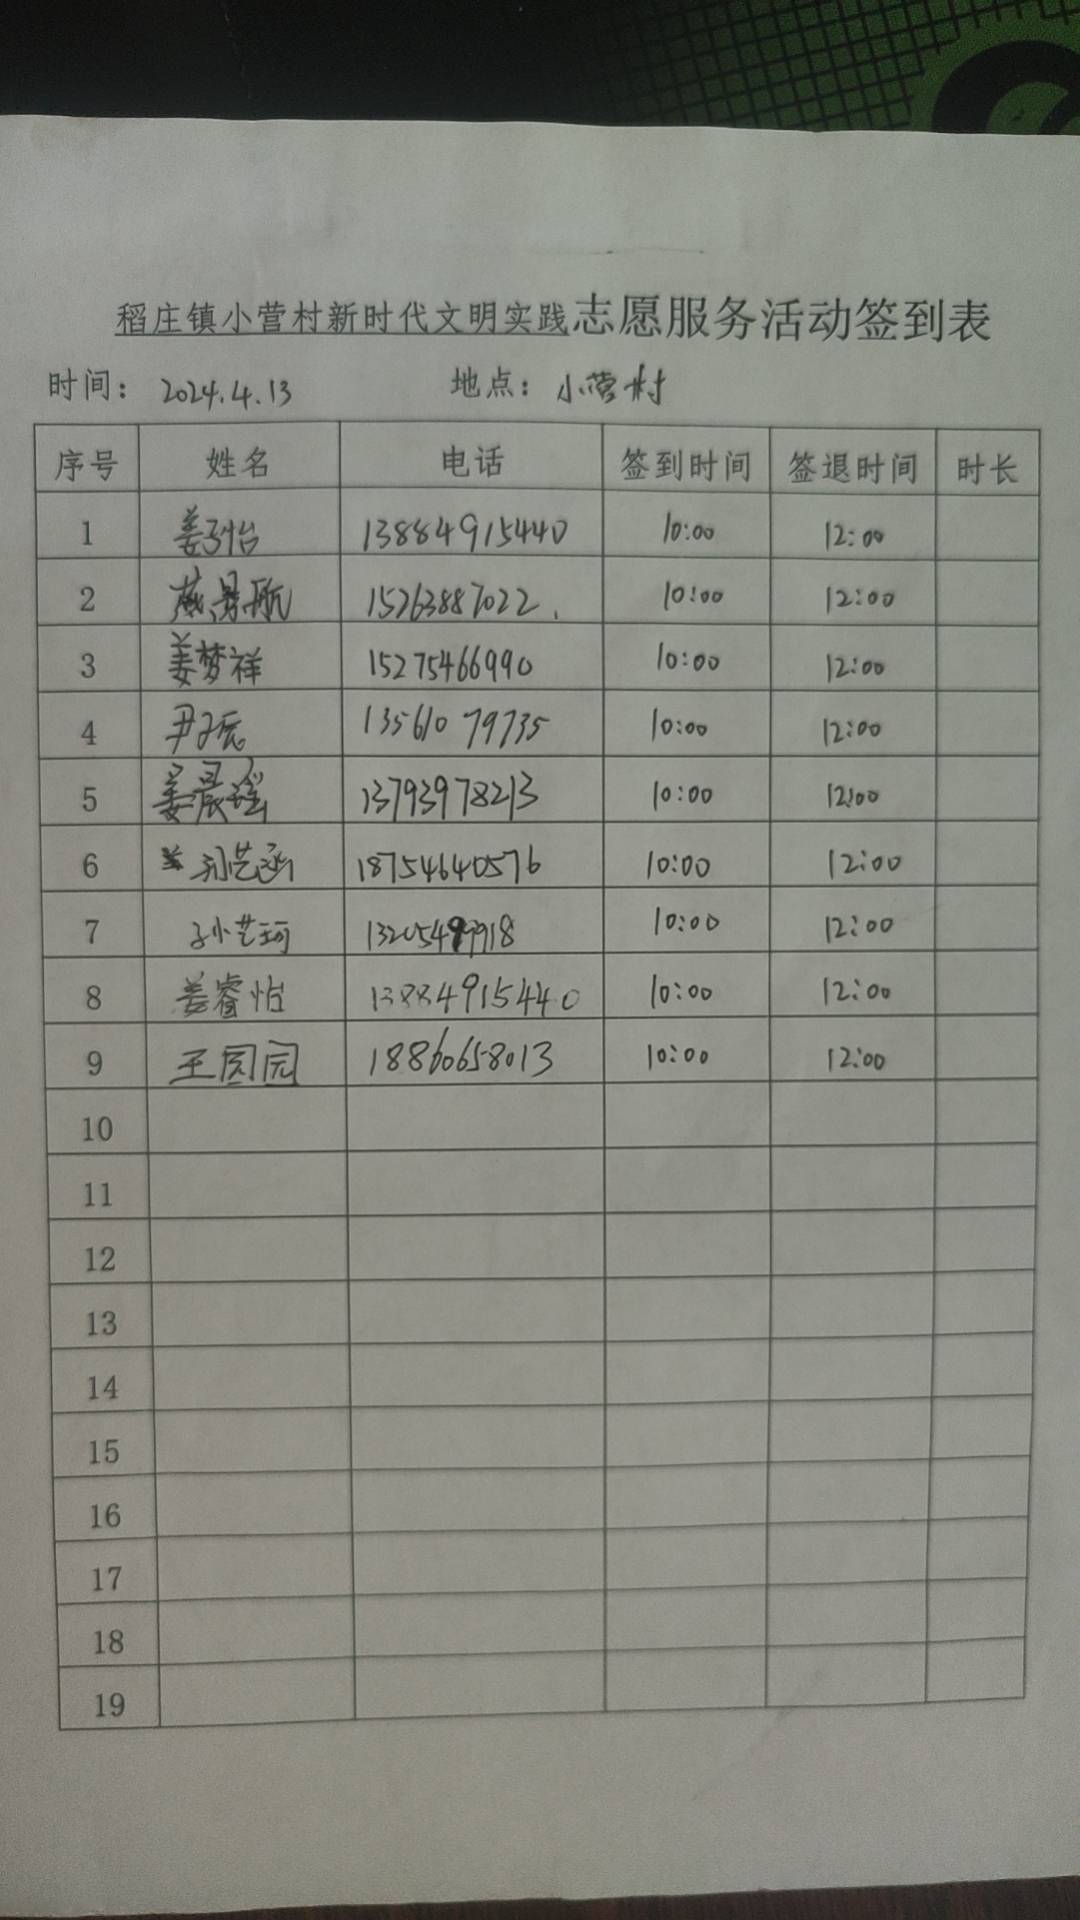 稻庄镇小营村新时代文明实践志愿服务活动签到表
时间： 2024.4.13 地点： 小营村
序号 姓名 电话 签到时间 签退时间 时长
1 姜子怡 13884915440 10:00 12:00
2 景航 15263887022. 10:00 12:00
3 姜梦祥 15275466990 10:00 12:00
4 尹子辰 13561079735 10:00 12:00
5 姜晨瑶 13793978213 10:00 12:00
6 孙艺涵 18754640576 10:00 12:00
7 孙艺珂 13205499918 10:00 12:00
8 姜睿怡 13884915440 10:00 12:00
9 王圆园 18860658013 10:00 12:00
10
11
12
13
14
15
16
17
18
19